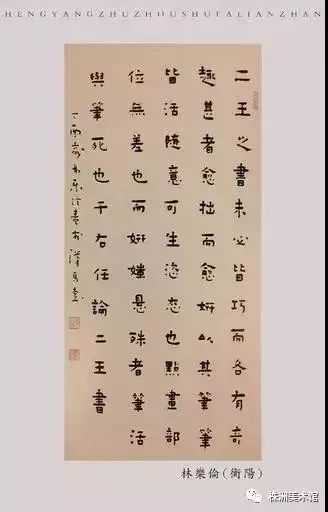 HENGYANGZHUZHOUSHUFALIANZHAN
二王之書未必皆巧而各有奇
趣甚者愈拙而愈妍以其筆筆
皆活隨意可生恣态也點畫部
位無差也而妍媸懸殊者筆活
與筆死也于右任論二王書
丁酉歲林樂倫書於
林樂倫(衡陽)
株洲美术馆